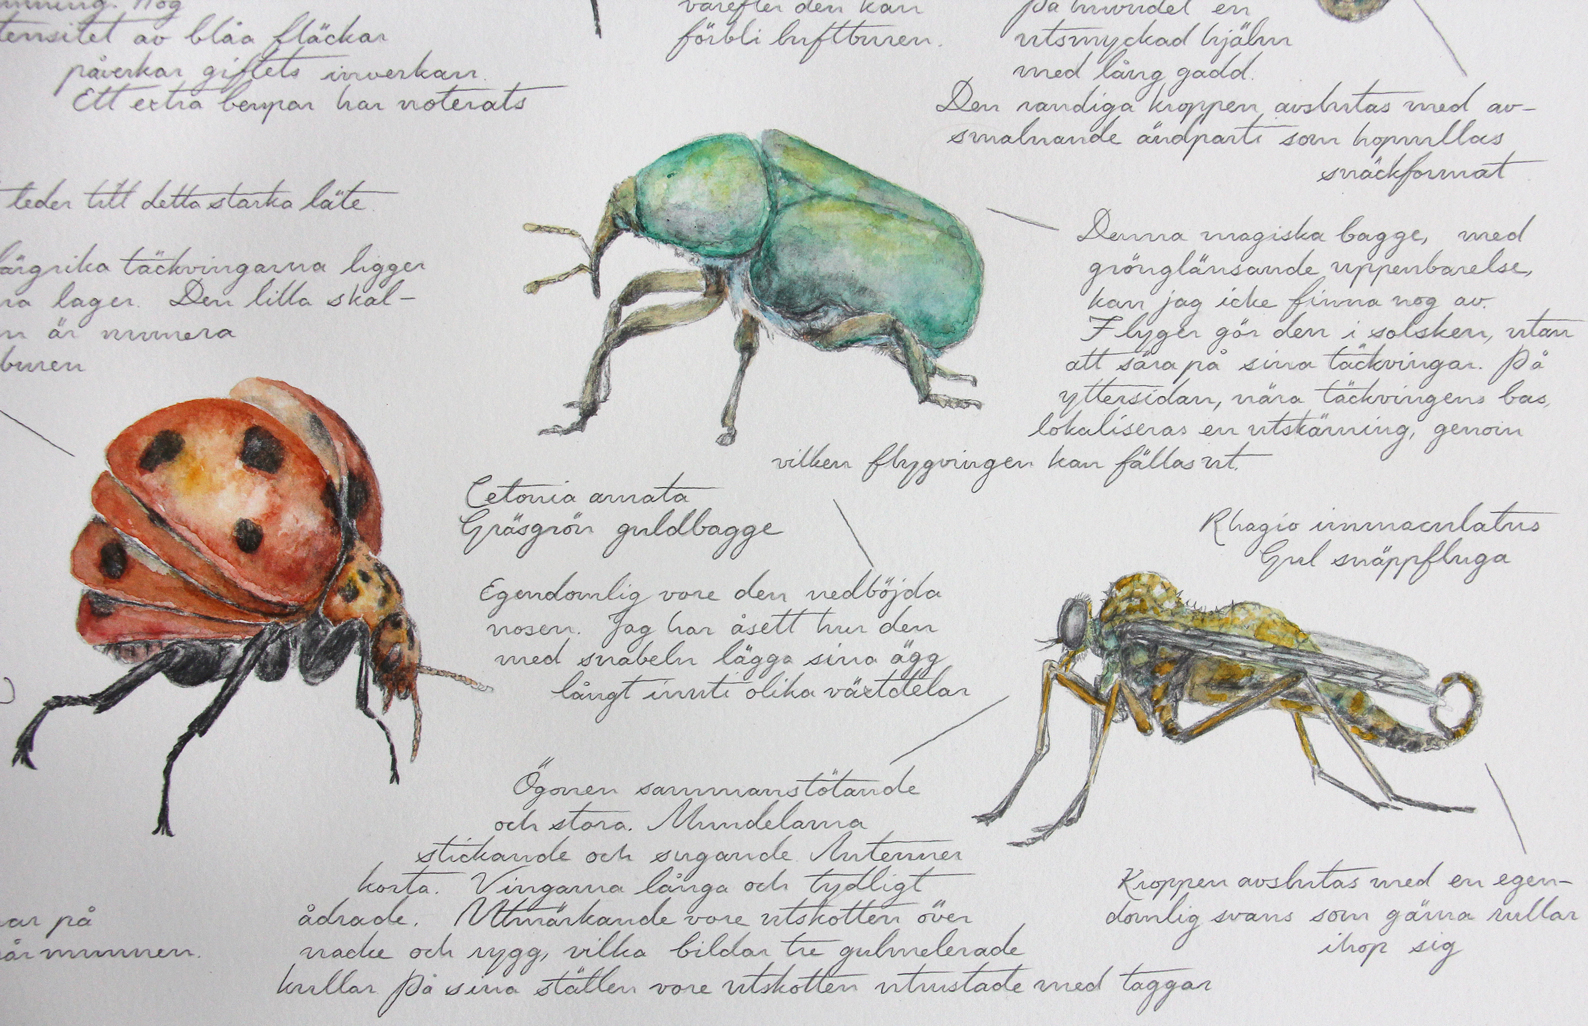 tensitet av blåa fläckar
påverkar giftets inverkan.
Ett extra benpar har noterats
leder till detta starka läte.
färgrika täckvingarna ligger
lager. Den lilla skal-
är numera
buren
varefter den kan
förbli luftburen.
På huvudet en
utsmyckad hjälm
med lång gadd.
Den randiga kroppen avslutas med av-
smalnande ändparti som hoprullas
snäckformat
Denna magiska bagge, med
grönglänsande uppenbarelse,
kan jag icke finna nog av.
Flyger gör den i solsken, utan
att sära på sina täckvingar. På
yttersidan, nära täckvingens bas,
lokaliseras en utskärning, genom
vilken flygvingen kan fällas ut.
Cetonia aurata
Gräsgrön guldbagge
Egendomlig vore den nedböjda
nosen. Jag har åsett hur den
med snabeln lägga sina ägg
långt inuti olika växtdelar
Rhagio immaculatus
Gul snäppfluga
Ögonen sammanstötande
och stora. Mundelarna
stickande och sugande. Antenner
korta. Vingarna långa och tydligt
ådrade. Utmärkande vore utskotten över
nacke och rygg, vilka bildar tre gulmelerade
kullar. På sina ställen vore utskotten utrustade med taggar
Kroppen avslutas med en egen-
domlig svans som gärna rullar
ihop sig
på
munnen.